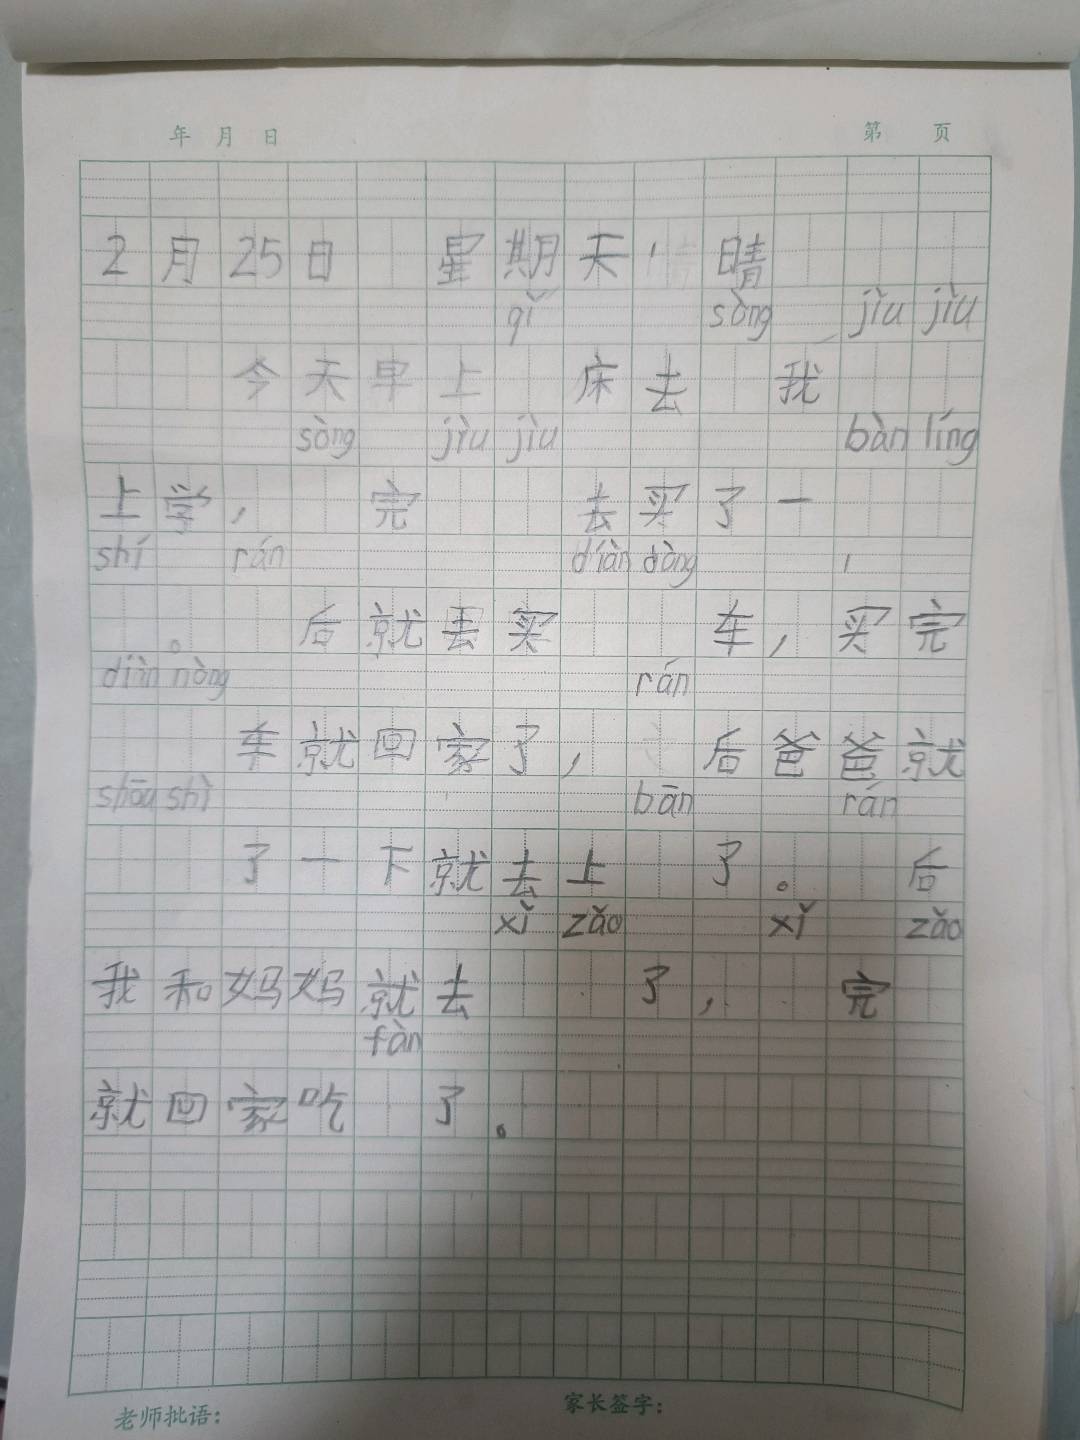 年 月 日 第 页
2月25日 星期天，晴
qǐ sòng jiù jiù
今天早上 床去 我
sòng jiù jiù bàn líng
上学， 完 去买了一
shí rán diàn dòng
。 后就去买 车，买完
diàn nòng rán
车就回家了， 后爸爸就
shōu shì bān rán
了一下就去上 了。 后
xǐ zǎo xǐ zǎo
我和妈妈就去 了， 完
fàn
就回家吃 了。
老师批语： 家长签字：